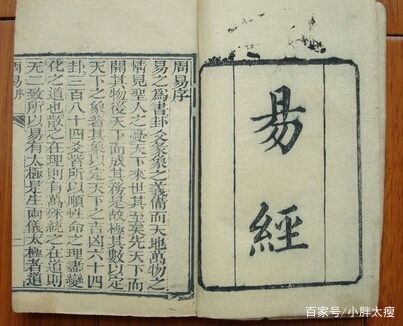 易經
周易序
易之爲書卦爻彖象之義備而天地萬物之
情見聖人之憂天下來世其至矣先天下而
開其物後天下而成其務是故極其數以定
天下之象著其象以定天下之吉凶六十四
卦三百八十四爻皆所以順性命之理盡變
化之道也散之在理則有萬殊統之在道則
无二致所以易有太極是生兩儀太極者道
周易序
百家号/小胖太瘦